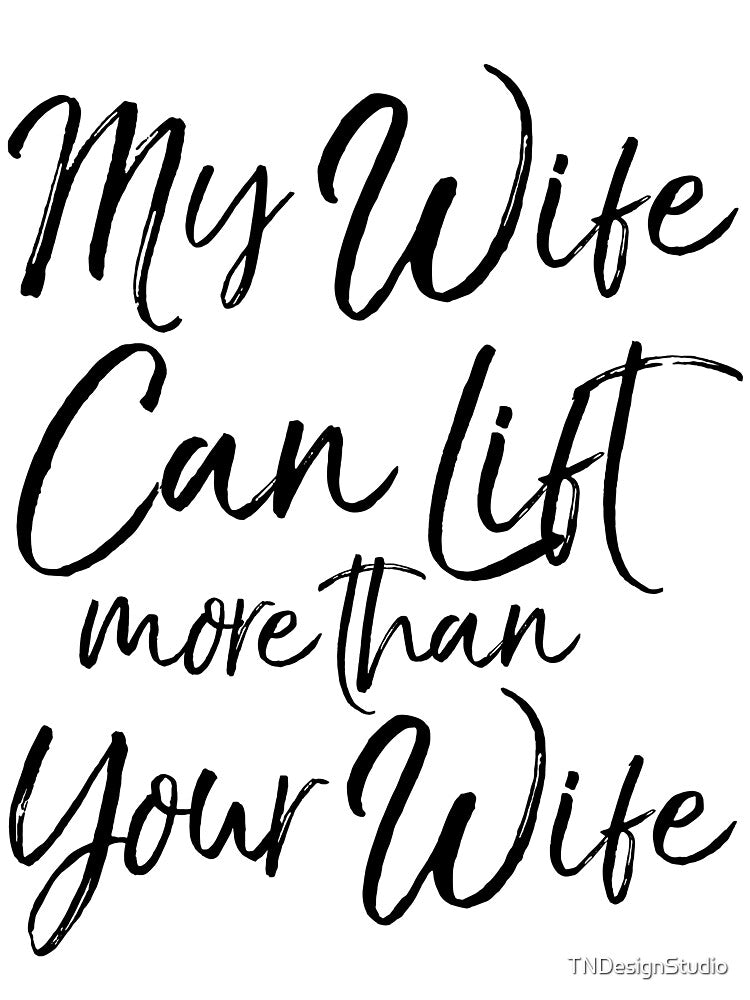 My Wife
Can Lift
more than
Your Wife
TNDesignStudio